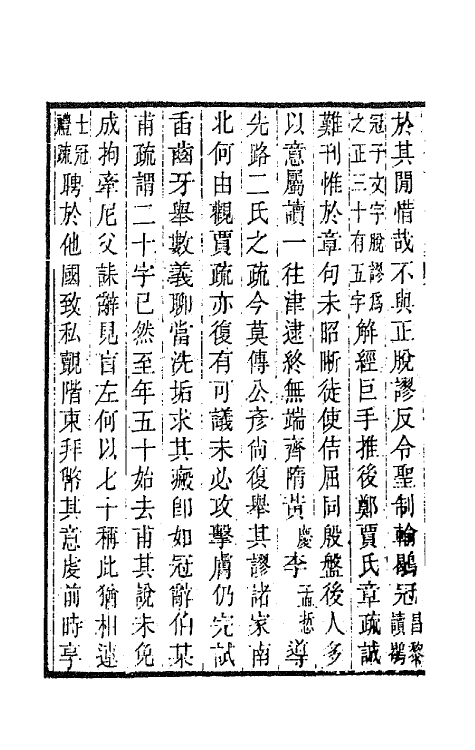 於其間惜哉不與正脫謬反令聖制輸鶡冠昌黎讀鶡
冠子文字脫謬爲之正三十有五字解經巨手推後鄭賈氏章疏誠
難刊惟於章句未昭晰徒使佶屈同殷盤後人多
以意屬讀一往津逮終無端齊隋黃慶李孟悊導
先路二氏之疏今莫傳公彥尙復舉其謬諸家南
北何由觀賈疏亦復有可議未必攻擊膚仍完試
臿齒牙舉數義聊當洗垢求其瘢卽如冠辭伯某
甫疏謂二十字已然至年五十始去甫其說未免
成拘牽尼父誄辭見盲左何以七十稱此猶相連
士冠禮疏聘於他國致私覿階東拜幣其意虔前時亨